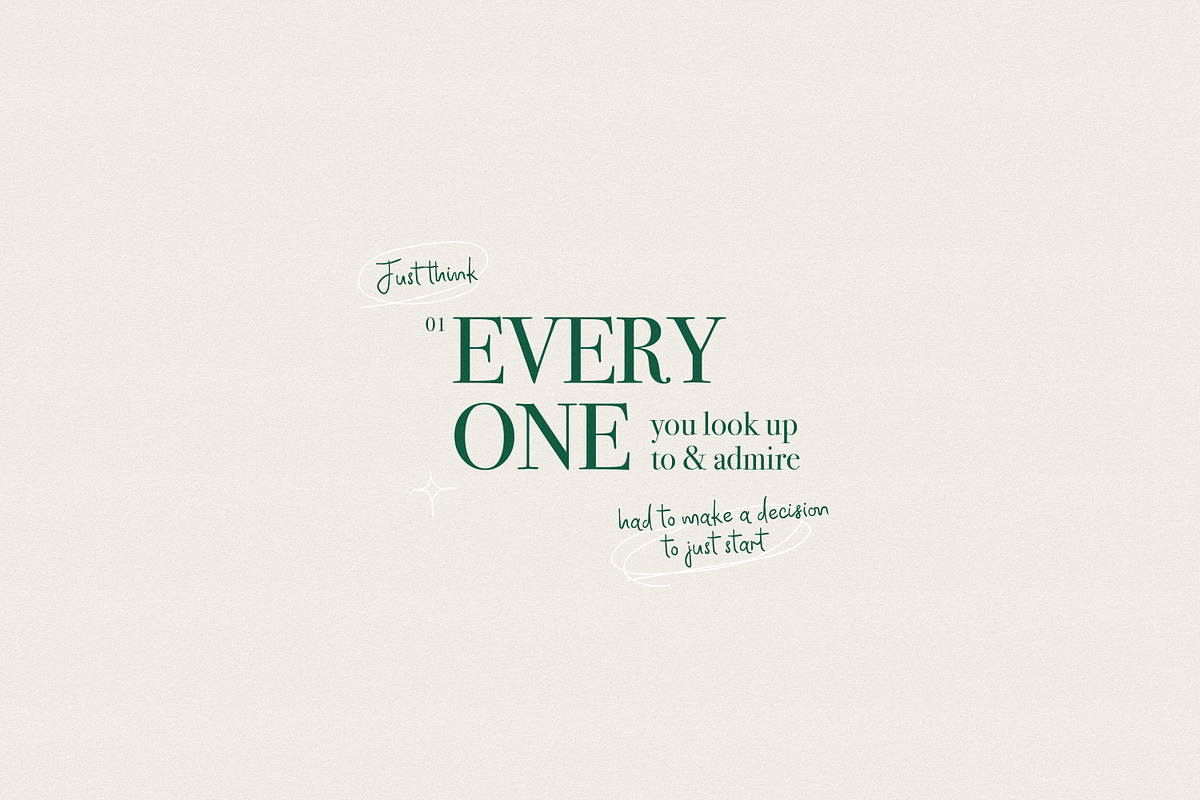 Just think
01 EVERY
ONE
you look up
to & admire
had to make a decision
to just start